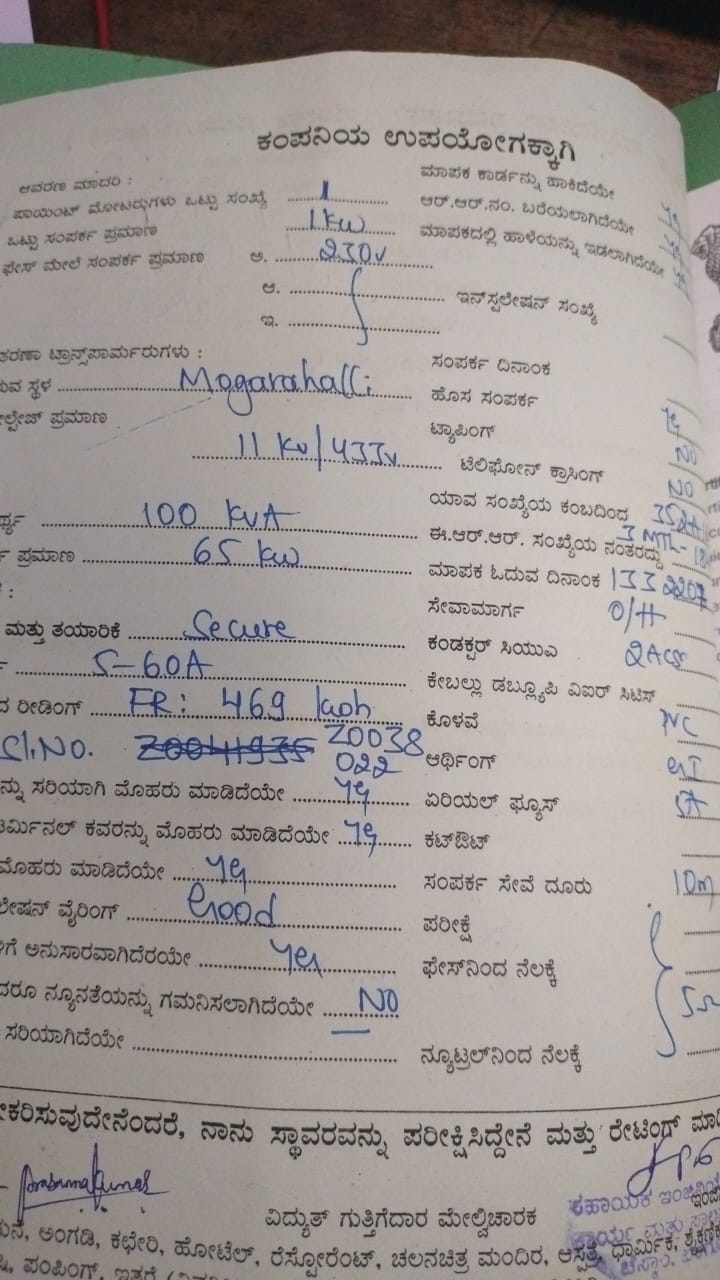 ಕಂಪನಿಯ ಉಪಯೋಗಕ್ಕಾಗಿ
ಆವರಣ ಮಾದರಿ : ಮಾಪಕ ಕಾರ್ಡನ್ನು ಹಾಕಿದೆಯೇ
ಪಾಯಿಂಟ್ ಮೋಟರುಗಳು ಒಟ್ಟು ಸಂಖ್ಯೆ 1 ಆರ್.ಆರ್.ನಂ. ಬರೆಯಲಾಗಿದೆಯೇ
ಒಟ್ಟು ಸಂಪರ್ಕ ಪ್ರಮಾಣ 1 KW ಮಾಪಕದಲ್ಲಿ ಹಾಳೆಯನ್ನು ಇಡಲಾಗಿದೆಯೇ
ಫೇಸ್ ಮೇಲೆ ಸಂಪರ್ಕ ಪ್ರಮಾಣ ಅ. 230v
ಆ. ಇನ್‌ಸ್ಪಲೇಷನ್ ಸಂಖ್ಯೆ
ಇ.
ತರಣಾ ಟ್ರಾನ್ಸ್‌ಪಾರ್ಮರುಗಳು : ಸಂಪರ್ಕ ದಿನಾಂಕ
ುವ ಸ್ಥಳ Mogarahalli ಹೊಸ ಸಂಪರ್ಕ Yes
ಲ್ಟೇಜ್ ಪ್ರಮಾಣ ಟ್ಯಾಪಿಂಗ್ NO
11 Kv/433v ಟೆಲಿಫೋನ್ ಕ್ರಾಸಿಂಗ್ NO
ಯಾವ ಸಂಖ್ಯೆಯ ಕಂಬದಿಂದ
ರ್ಥ್ಯ 100 KVA ಈ.ಆರ್.ಆರ್. ಸಂಖ್ಯೆಯ ನಂತರದ್ದು
ಪ್ರಮಾಣ 65 KW ಮಾಪಕ ಓದುವ ದಿನಾಂಕ
ಸೇವಾಮಾರ್ಗ O/H
ಮತ್ತು ತಯಾರಿಕೆ Secure ಕಂಡಕ್ಟರ್ ಸಿಯುಎ
5-60A ಕೇಬಲ್ಲು ಡಬ್ಲ್ಯೂಪಿ ವಿಐರ್ ಸಿಟಿಸ್
ದ ರೀಡಿಂಗ್ FR: 469 kwh ಕೊಳವೆ PVC
Sl.No. Z0038
022 ಆರ್ಥಿಂಗ್ GI
ನ್ನು ಸರಿಯಾಗಿ ಮೊಹರು ಮಾಡಿದೆಯೇ Yes ಏರಿಯಲ್ ಫ್ಯೂಸ್ 5A
ರ್ಮಿನಲ್ ಕವರನ್ನು ಮೊಹರು ಮಾಡಿದೆಯೇ Yes ಕಟ್‌ಔಟ್
ಮೊಹರು ಮಾಡಿದೆಯೇ Yes ಸಂಪರ್ಕ ಸೇವೆ ದೂರು 10m
ಲೇಷನ್ ವೈರಿಂಗ್ Good ಪರೀಕ್ಷೆ
ಗೆ ಅನುಸಾರವಾಗಿದೆರಯೇ Yes ಫೇಸ್‌ನಿಂದ ನೆಲಕ್ಕೆ
ದರೂ ನ್ಯೂನತೆಯನ್ನು ಗಮನಿಸಲಾಗಿದೆಯೇ NO
ಸರಿಯಾಗಿದೆಯೇ ನ್ಯೂಟ್ರಲ್‌ನಿಂದ ನೆಲಕ್ಕೆ
ಕರಿಸುವುದೇನೆಂದರೆ, ನಾನು ಸ್ಥಾವರವನ್ನು ಪರೀಕ್ಷಿಸಿದ್ದೇನೆ ಮತ್ತು ರೇಟಿಂಗ್
ಸಹಾಯಕ ಇಂಜಿನಿಯ
ವಿದ್ಯುತ್ ಗುತ್ತಿಗೆದಾರ ಮೇಲ್ವಿಚಾರಕ
ಅಂಗಡಿ, ಕಛೇರಿ, ಹೋಟೆಲ್, ರೆಸ್ಟೋರೆಂಟ್, ಚಲನಚಿತ್ರ ಮಂದಿರ, ಆಸ್ಪತ್ರೆ, ಧಾರ್ಮಿಕ,
ಪಂಪಿಂಗ್, ಇತರೆ